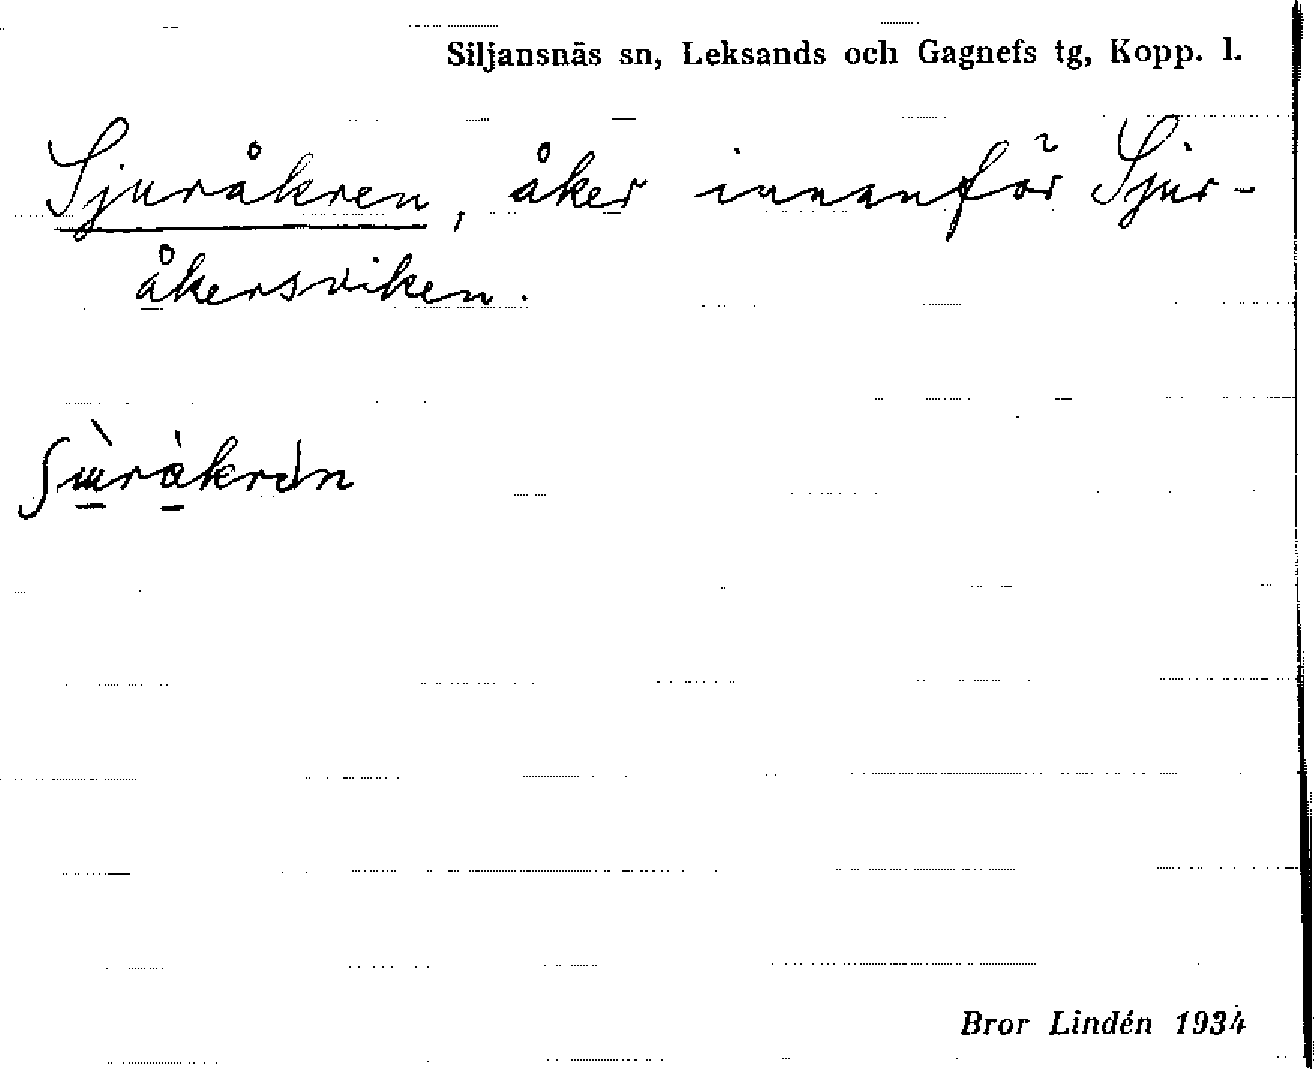 Siljansnäs sn, Leksands och Gagnefs tg, Kopp. l.
Sjuråkren, åker innanför Sjur-
åkersviken.
Bror Lindén 1934